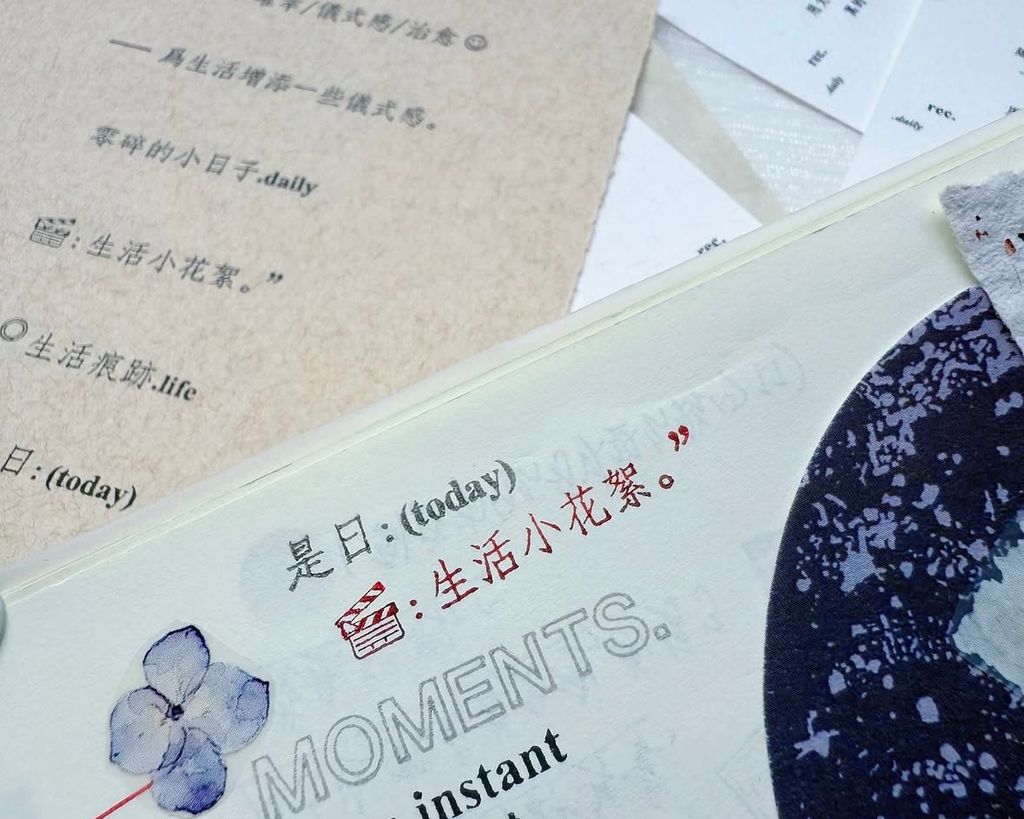 /儀式感/治愈☺
── 爲生活增添一些儀式感。
零碎的小日子.daily
🎬:生活小花絮。”
◎生活痕跡.life
日:(today)
rec.
daily
rec.
.daily
rec.
是日:(today)
🎬:生活小花絮。”
MOMENTS.
instant